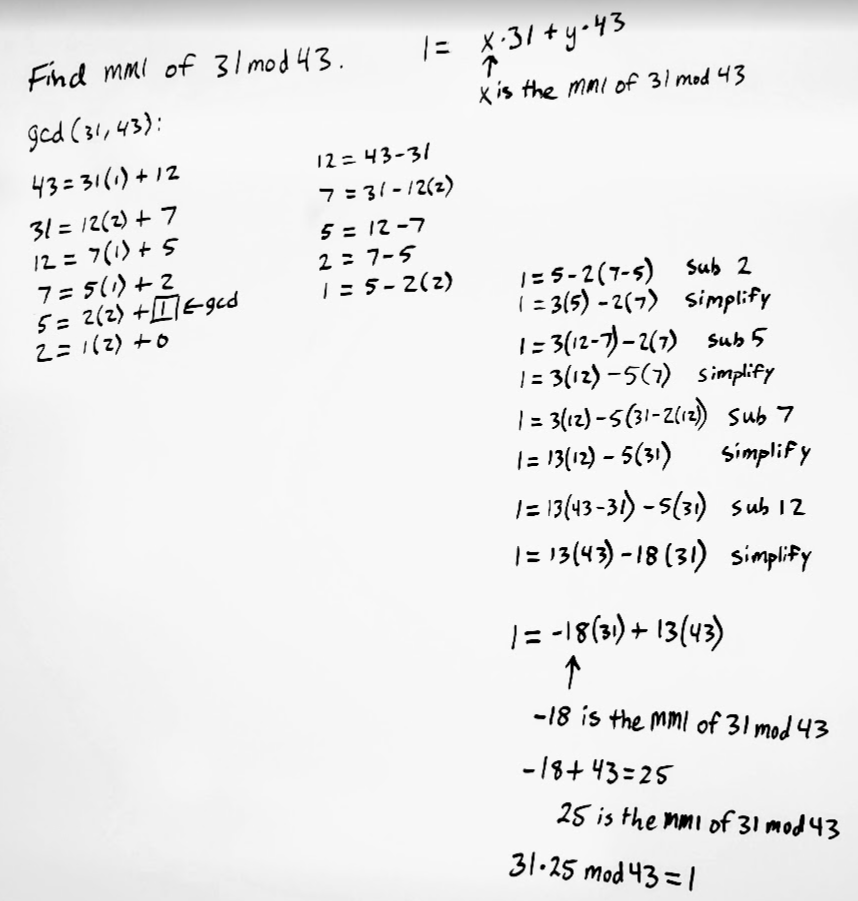 Find mmi of 31 mod 43.
1 = x·31 + y·43
↑
x is the mmi of 31 mod 43
gcd(31,43):
43 = 31(1) + 12
31 = 12(2) + 7
12 = 7(1) + 5
7 = 5(1) + 2
5 = 2(2) + 1 ← gcd
2 = 1(2) + 0
12 = 43-31
7 = 31-12(2)
5 = 12-7
2 = 7-5
1 = 5-2(2)
1 = 5-2(7-5) sub 2
1 = 3(5)-2(7) simplify
1 = 3(12-7)-2(7) sub 5
1 = 3(12)-5(7) simplify
1 = 3(12)-5(31-2(12)) sub 7
1 = 13(12)-5(31) simplify
1 = 13(43-31)-5(31) sub 12
1 = 13(43)-18(31) simplify
1 = -18(31) + 13(43)
↑
-18 is the mmi of 31 mod 43
-18+43=25
25 is the mmi of 31 mod 43
31·25 mod 43 = 1